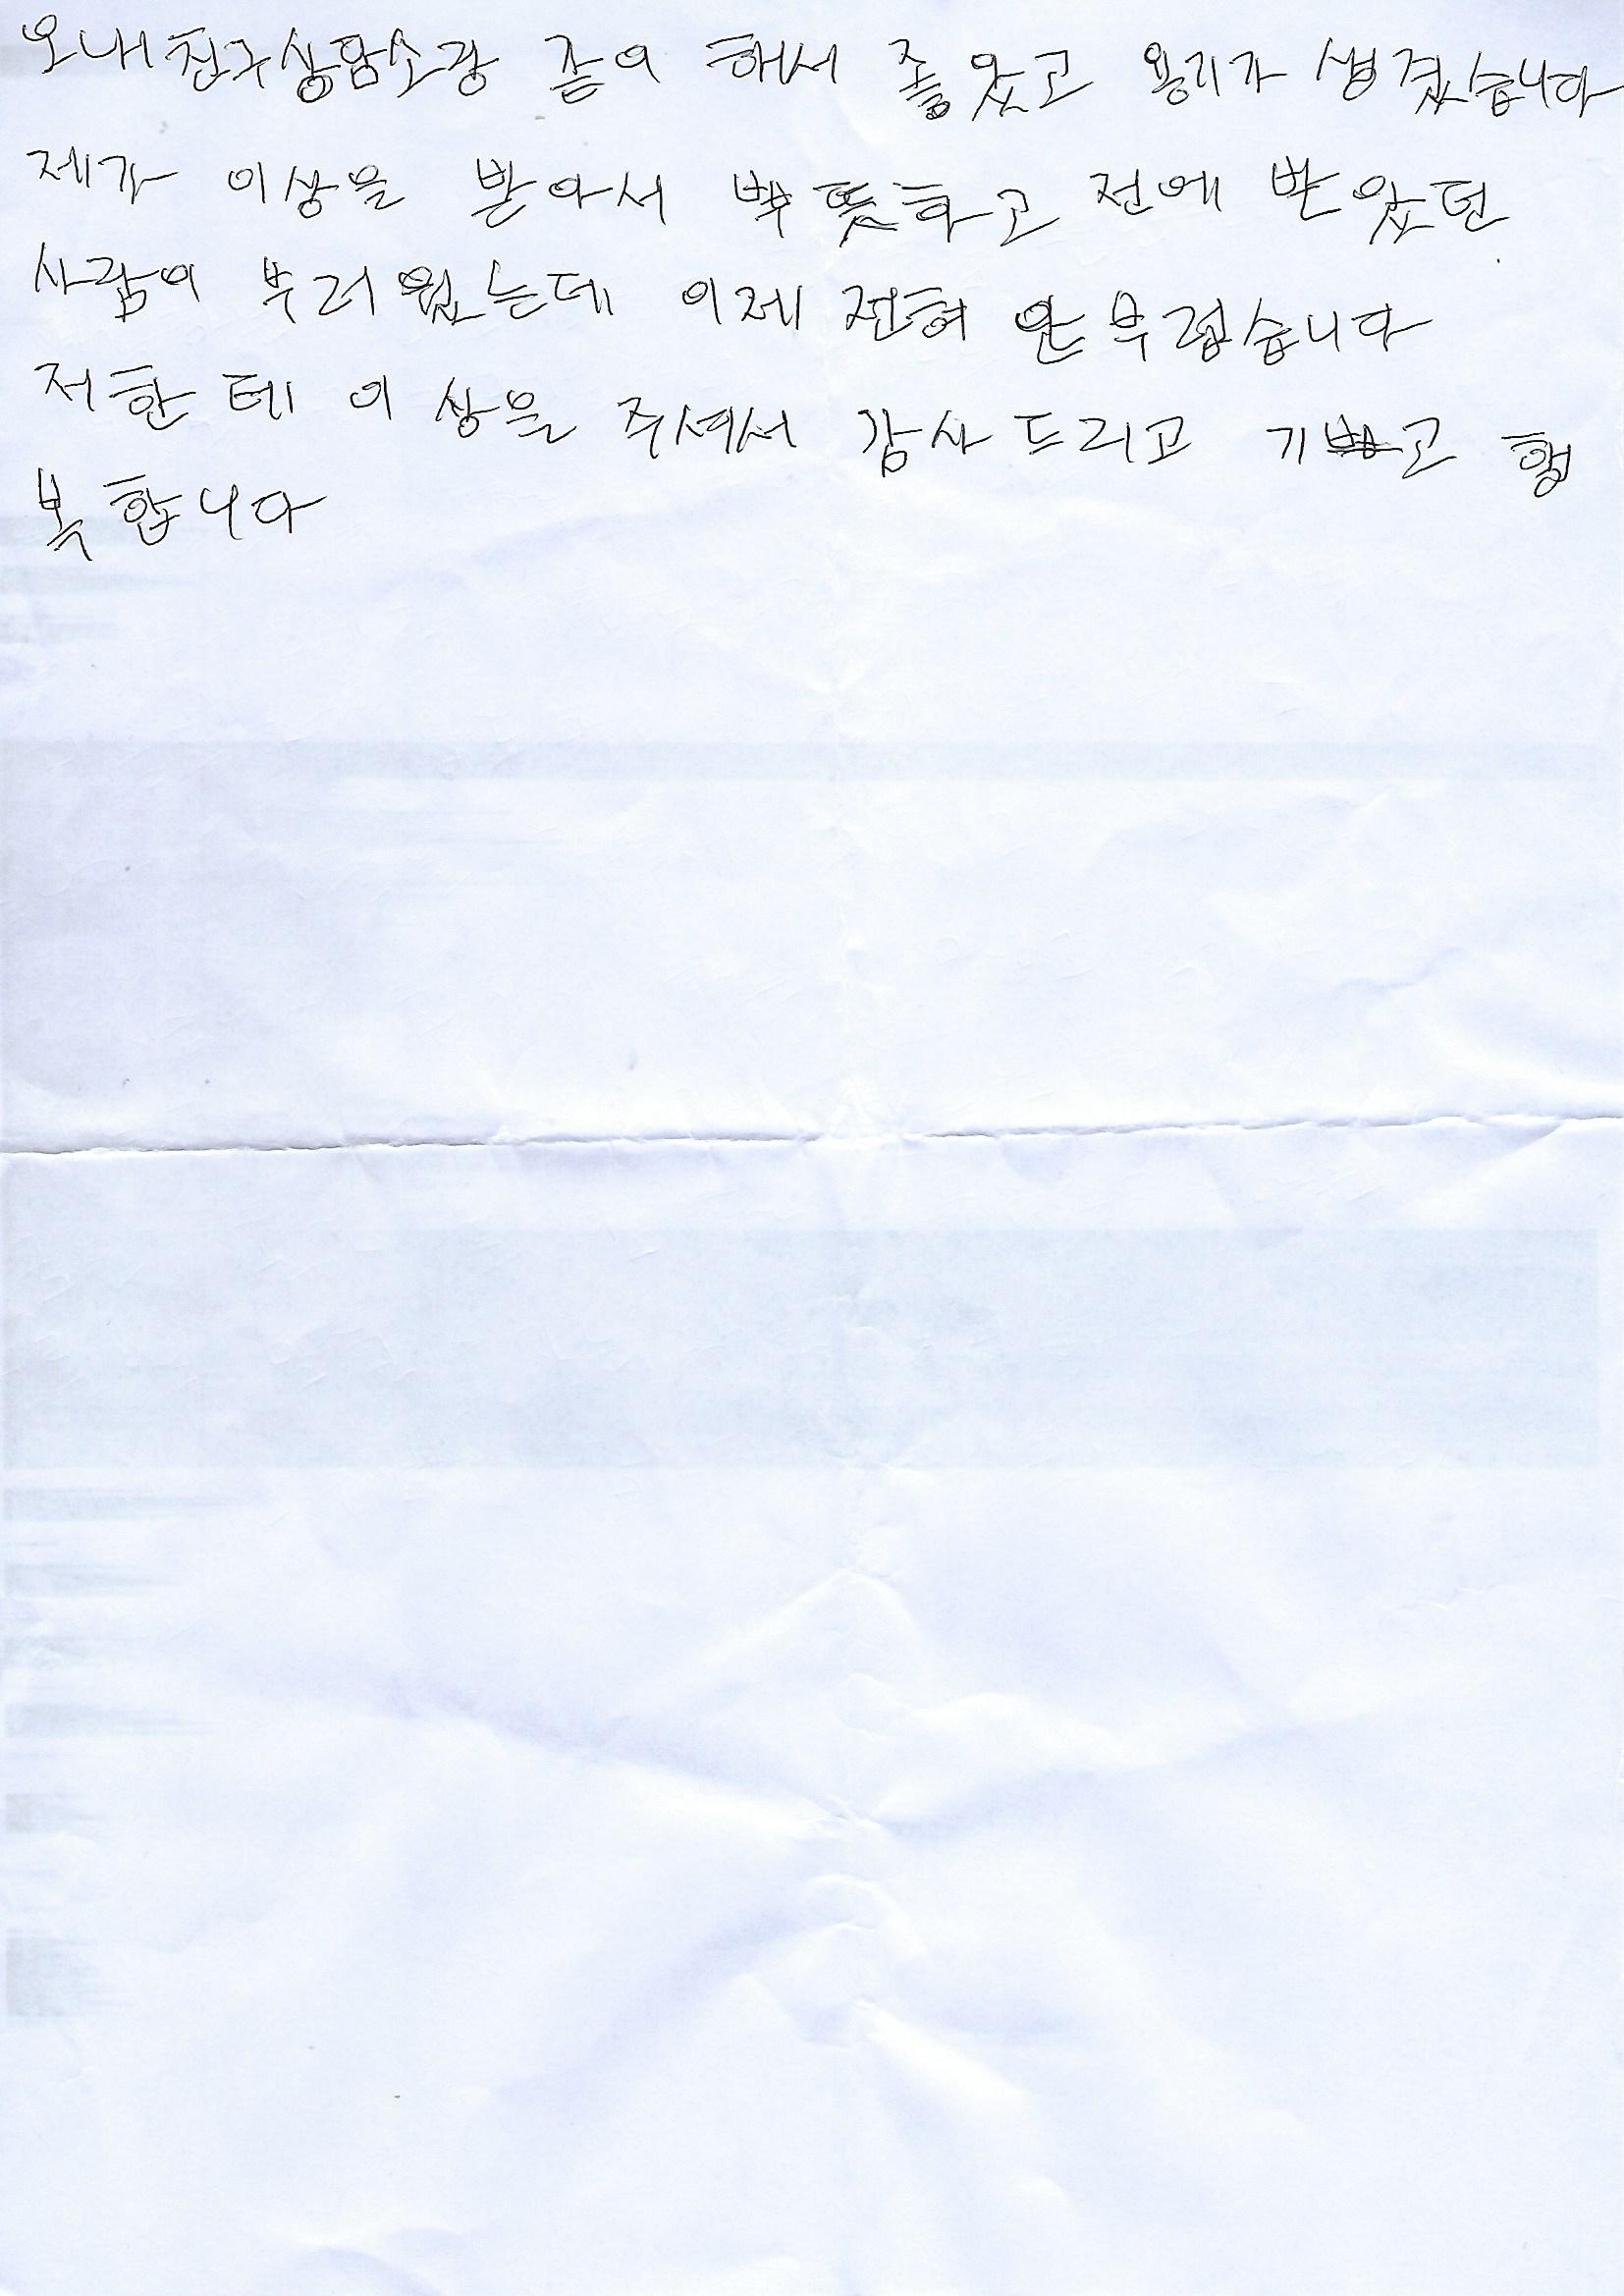 오내친구상담소랑 같이 해서 좋았고 용기가 생겼습니다
제가 이상을 받아서 뿌듯하고 전에 받았던
사람이 부러웠는데 이제 전혀 안부럽습니다
저한테 이 상을 주셔서 감사드리고 기쁘고 행
복합니다